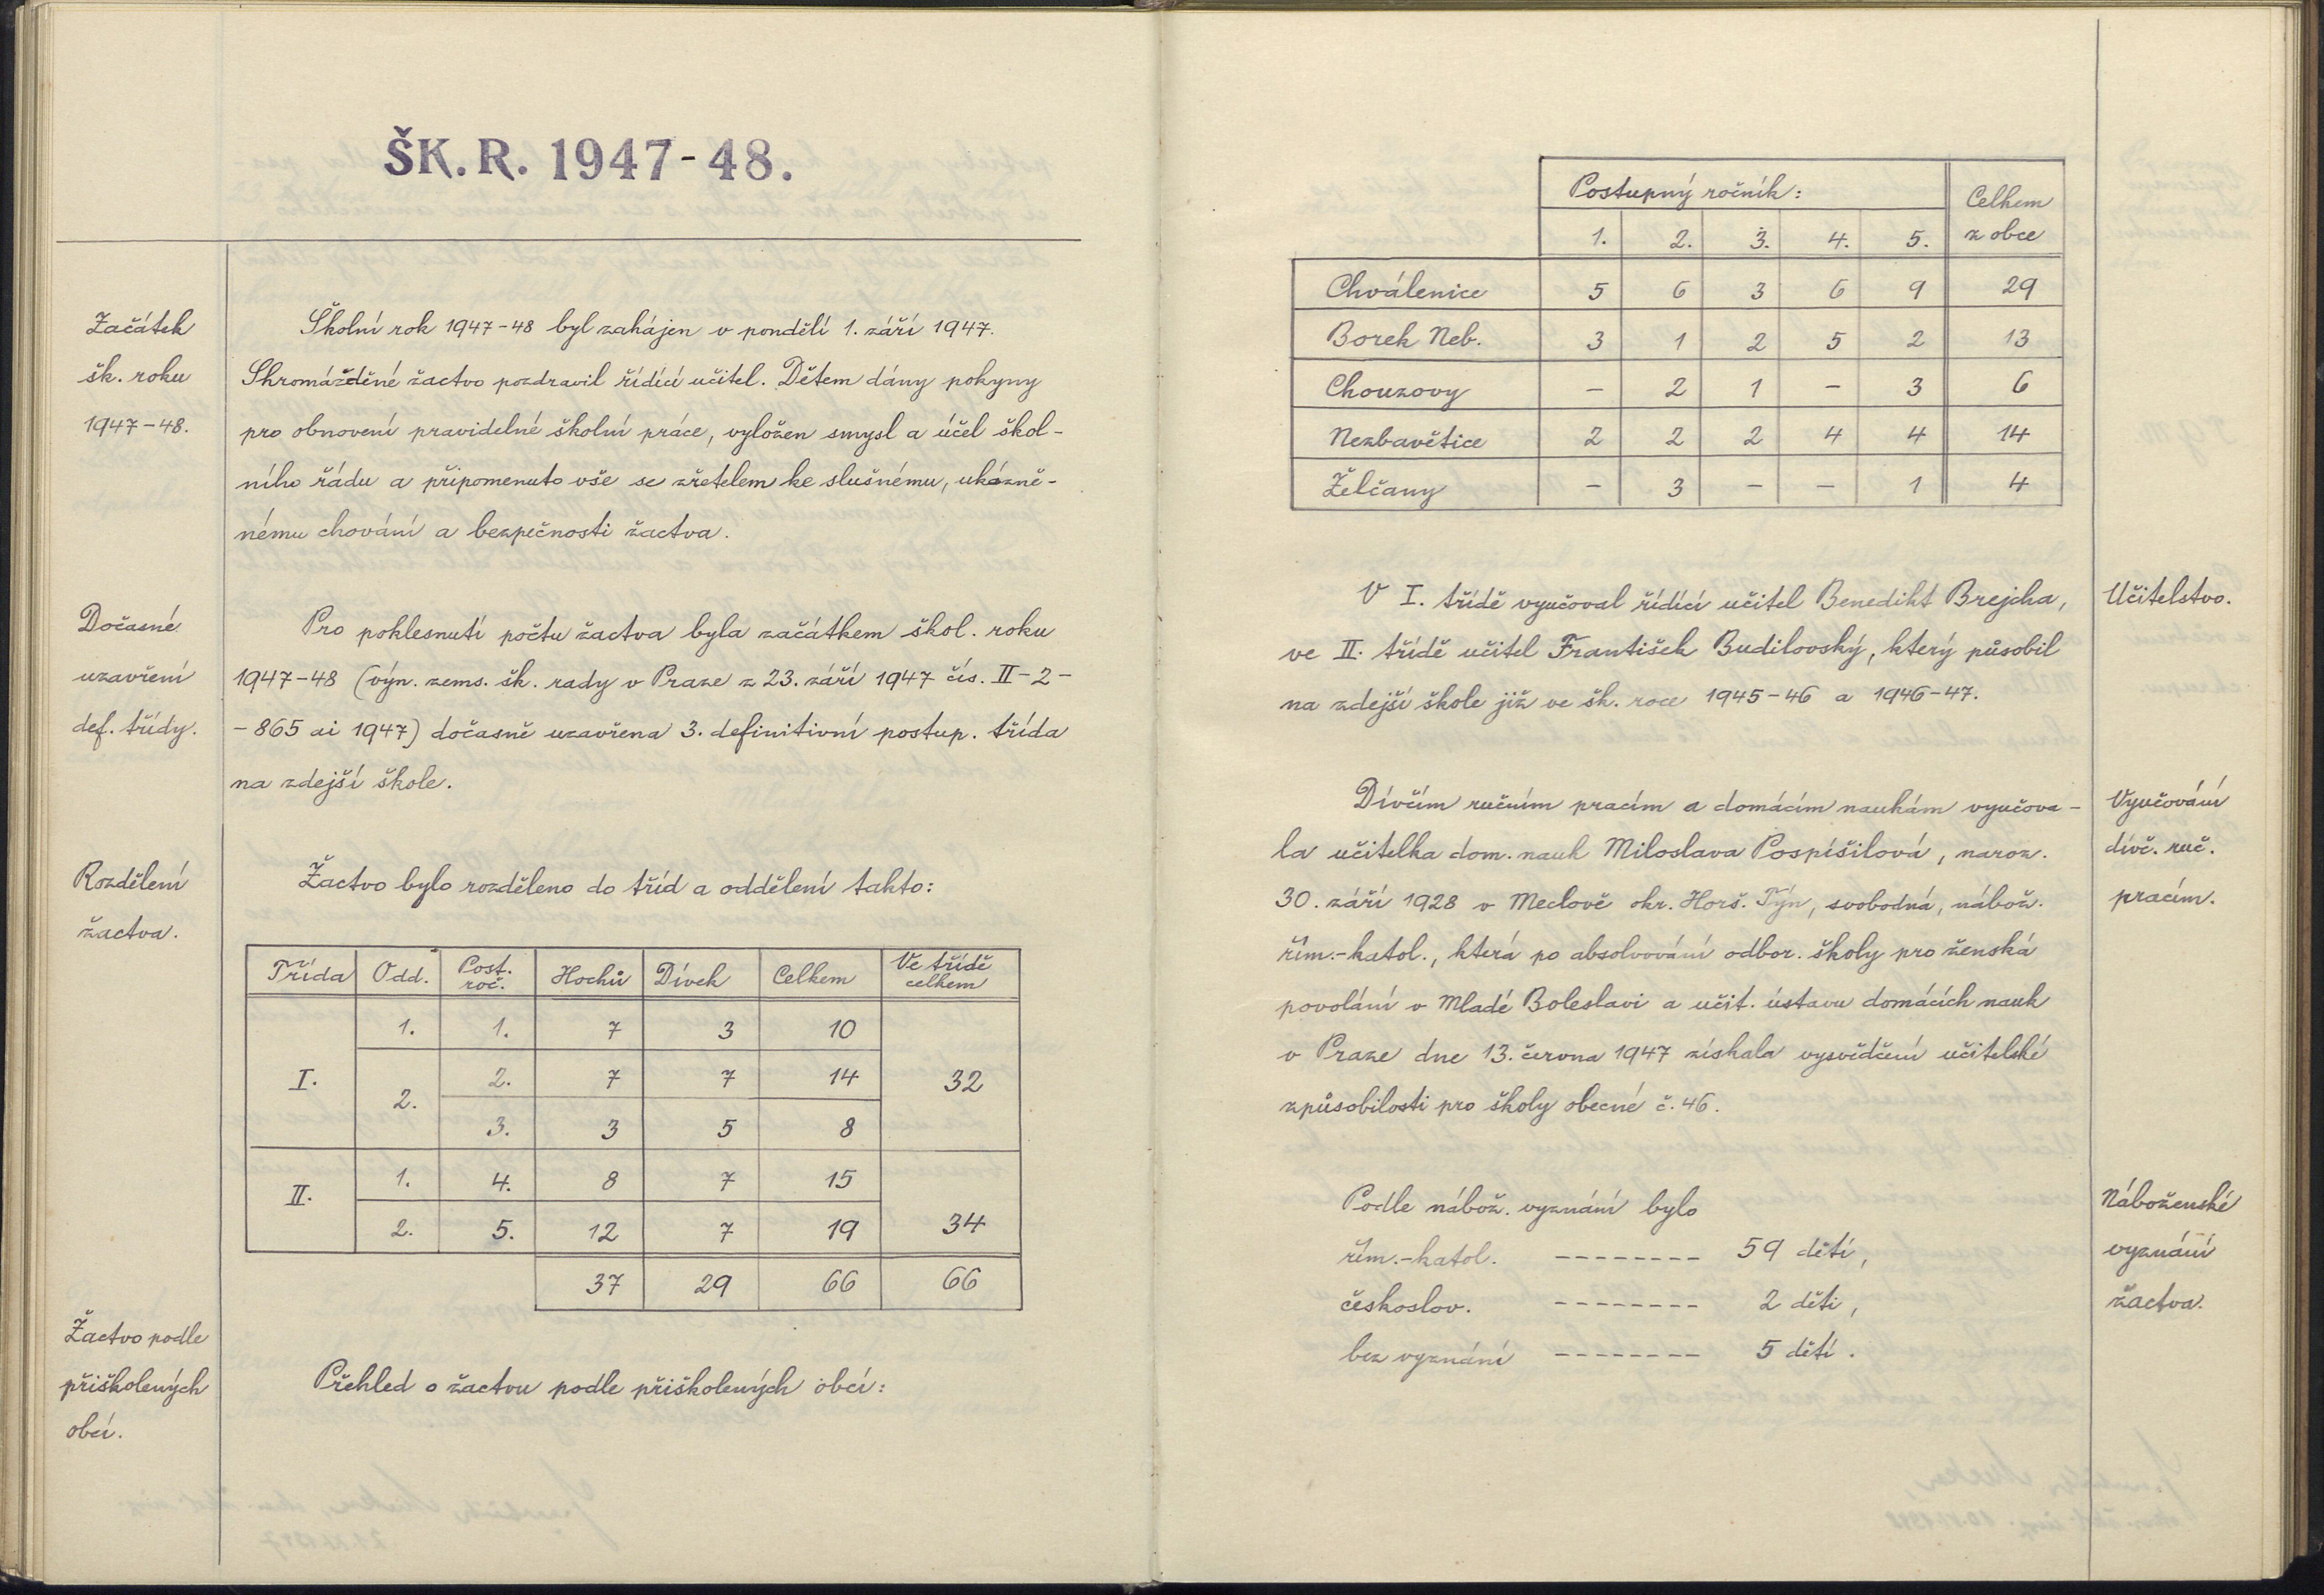 ŠK. R. 1947-48.
Začátek
šk. roku
1947-48.
Školní rok 1947-48 byl zahájen v pondělí 1. září 1947.
Shromážděné žactvo pozdravil řídící učitel. Dětem dány pokyny
pro obnovení pravidelné školní práce, vyložen smysl a účel škol-
ního řádu a připomenuto vše se zřetelem ke slušnému, ukázně-
nému chování a bezpečnosti žactva.
Dočasné
uzavření
def. třídy.
Pro poklesnutí počtu žactva byla začátkem škol. roku
1947-48 (výn. zems. šk. rady v Praze z 23. září 1947 čís. II-2-
-865 ai 1947) dočasně uzavřena 3. definitivní postup. třída
na zdejší škole.
Rozdělení
žactva.
Žactvo bylo rozděleno do tříd a oddělení takto:
Třída Odd. Post. roč. Hochů Dívek Celkem Ve třídě celkem
I. 1. 1. 7 3 10 32
2. 2. 7 7 14
3. 3 5 8
II. 1. 4. 8 7 15 34
2. 5. 12 7 19
37 29 66 66
Žactvo podle
přiškolených
obcí.
Přehled o žactvu podle přiškolených obcí:
Postupný ročník: Celkem
1. 2. 3. 4. 5. z obce
Chválenice 5 6 3 6 9 29
Borek Neb. 3 1 2 5 2 13
Chouzovy - 2 1 - 3 6
Nezbavětice 2 2 2 4 4 14
Želčany - 3 - - 1 4
V I. třídě vyučoval řídící učitel Benedikt Brejcha,
ve II. třídě učitel František Budilovský, který působil
na zdejší škole již ve šk. roce 1945-46 a 1946-47.
Učitelstvo.
Dívčím ručním pracím a domácím naukám vyučova-
la učitelka dom. nauk Miloslava Pospíšilová, naroz.
30. září 1928 v Meclově okr. Horš. Týn, svobodná, nábož.
řím.-katol., která po absolvování odbor. školy pro ženská
povolání v Mladé Boleslavi a učit. ústavu domácích nauk
v Praze dne 13. června 1947 získala vysvědčení učitelské
způsobilosti pro školy obecné č. 46.
Vyučování
dívč. ruč.
pracím.
Podle nábož. vyznání bylo
řím.-katol. -------- 59 dětí,
českoslov. -------- 2 děti,
bez vyznání -------- 5 dětí.
Náboženské
vyznání
žactva.